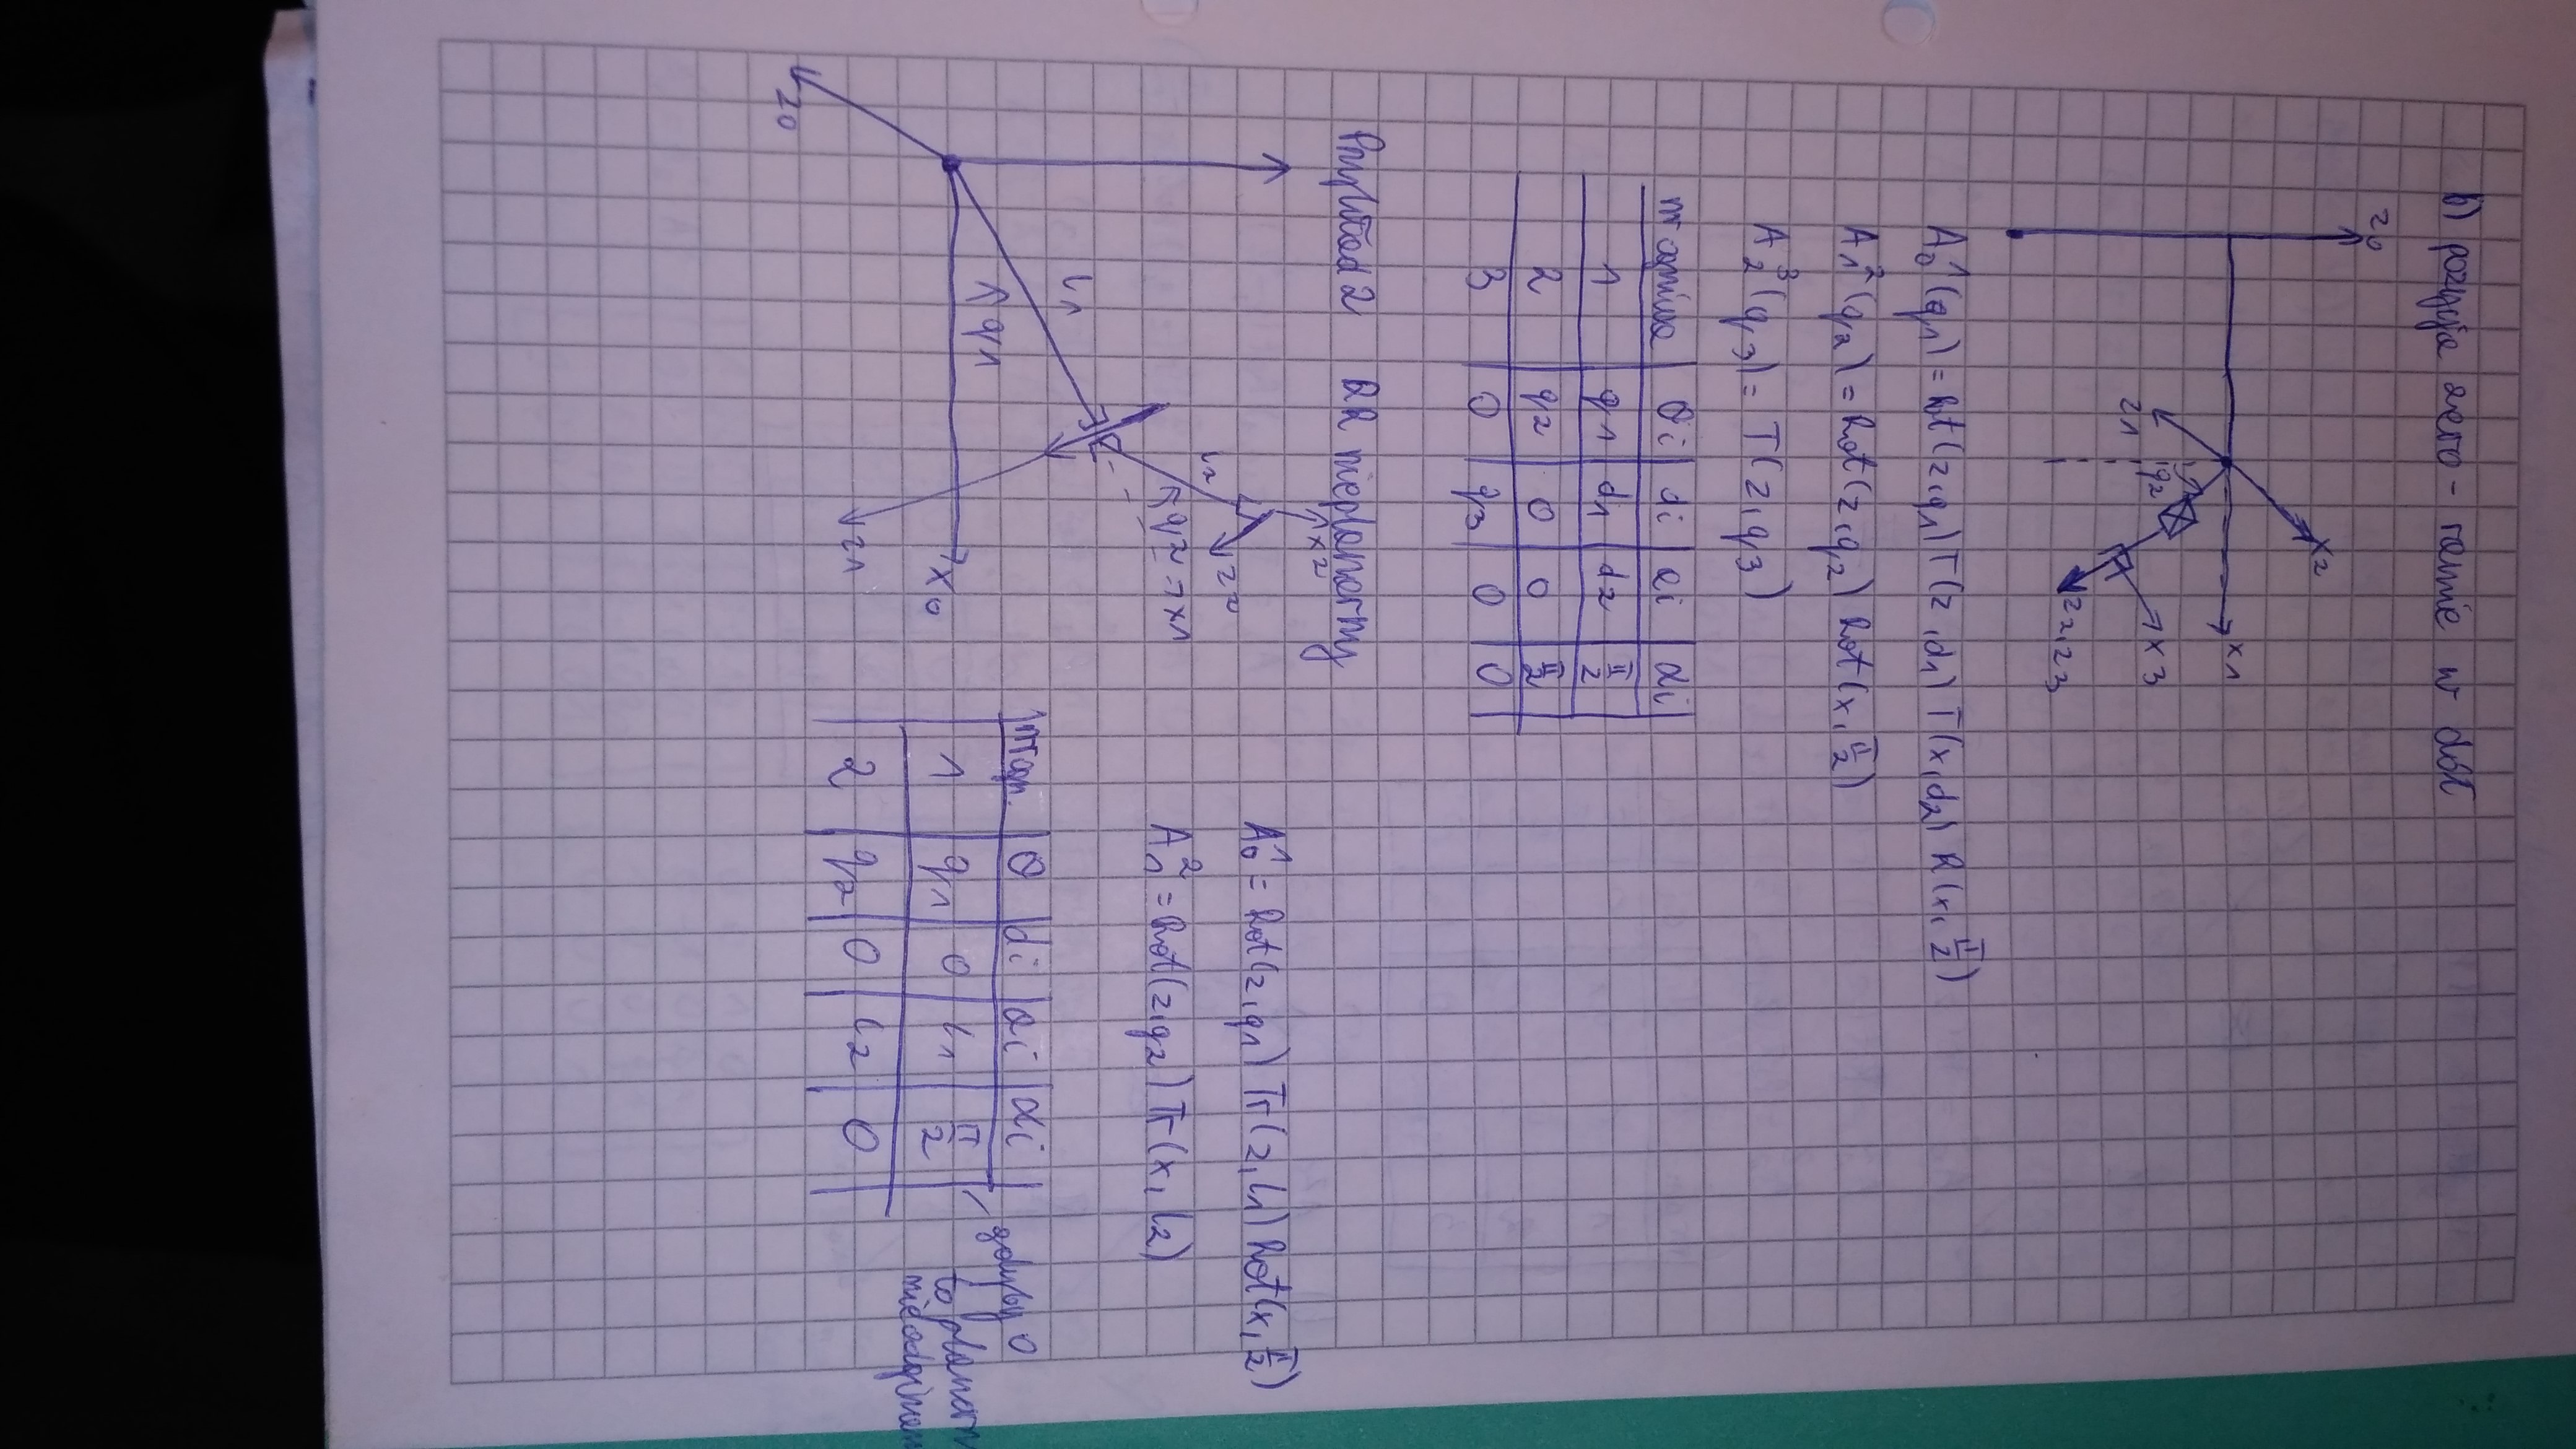 b) pozycja zero - ramię w dół
z0
x2
x1
z1
q2
x3
z2,z3
A₀¹(q1) = Rot(z,q1)T(z,d1)T(x,d2)R(x,π/2)
A₁²(q2) = Rot(z,q2) Rot(x,π/2)
A₂³(q3) = T(z,q3)
nr ogniwa θi di ai αi
1 q1 d1 d2 π/2
2 q2 0 0 π/2
3 0 q3 0 0
Przykład 2 RR nieplanarny
l1
l2
x2
z2
q2 → x1
q1
x0
z1
z0
A₀¹ = Rot(z,q1) Tr(z,l1) Rot(x,π/2)
A₁² = Rot(z,q2) Tr(x,l2)
nr ogn. θ di ai αi
1 q1 0 l1 π/2
2 q2 0 l2 0
gdyby 0
to planarn